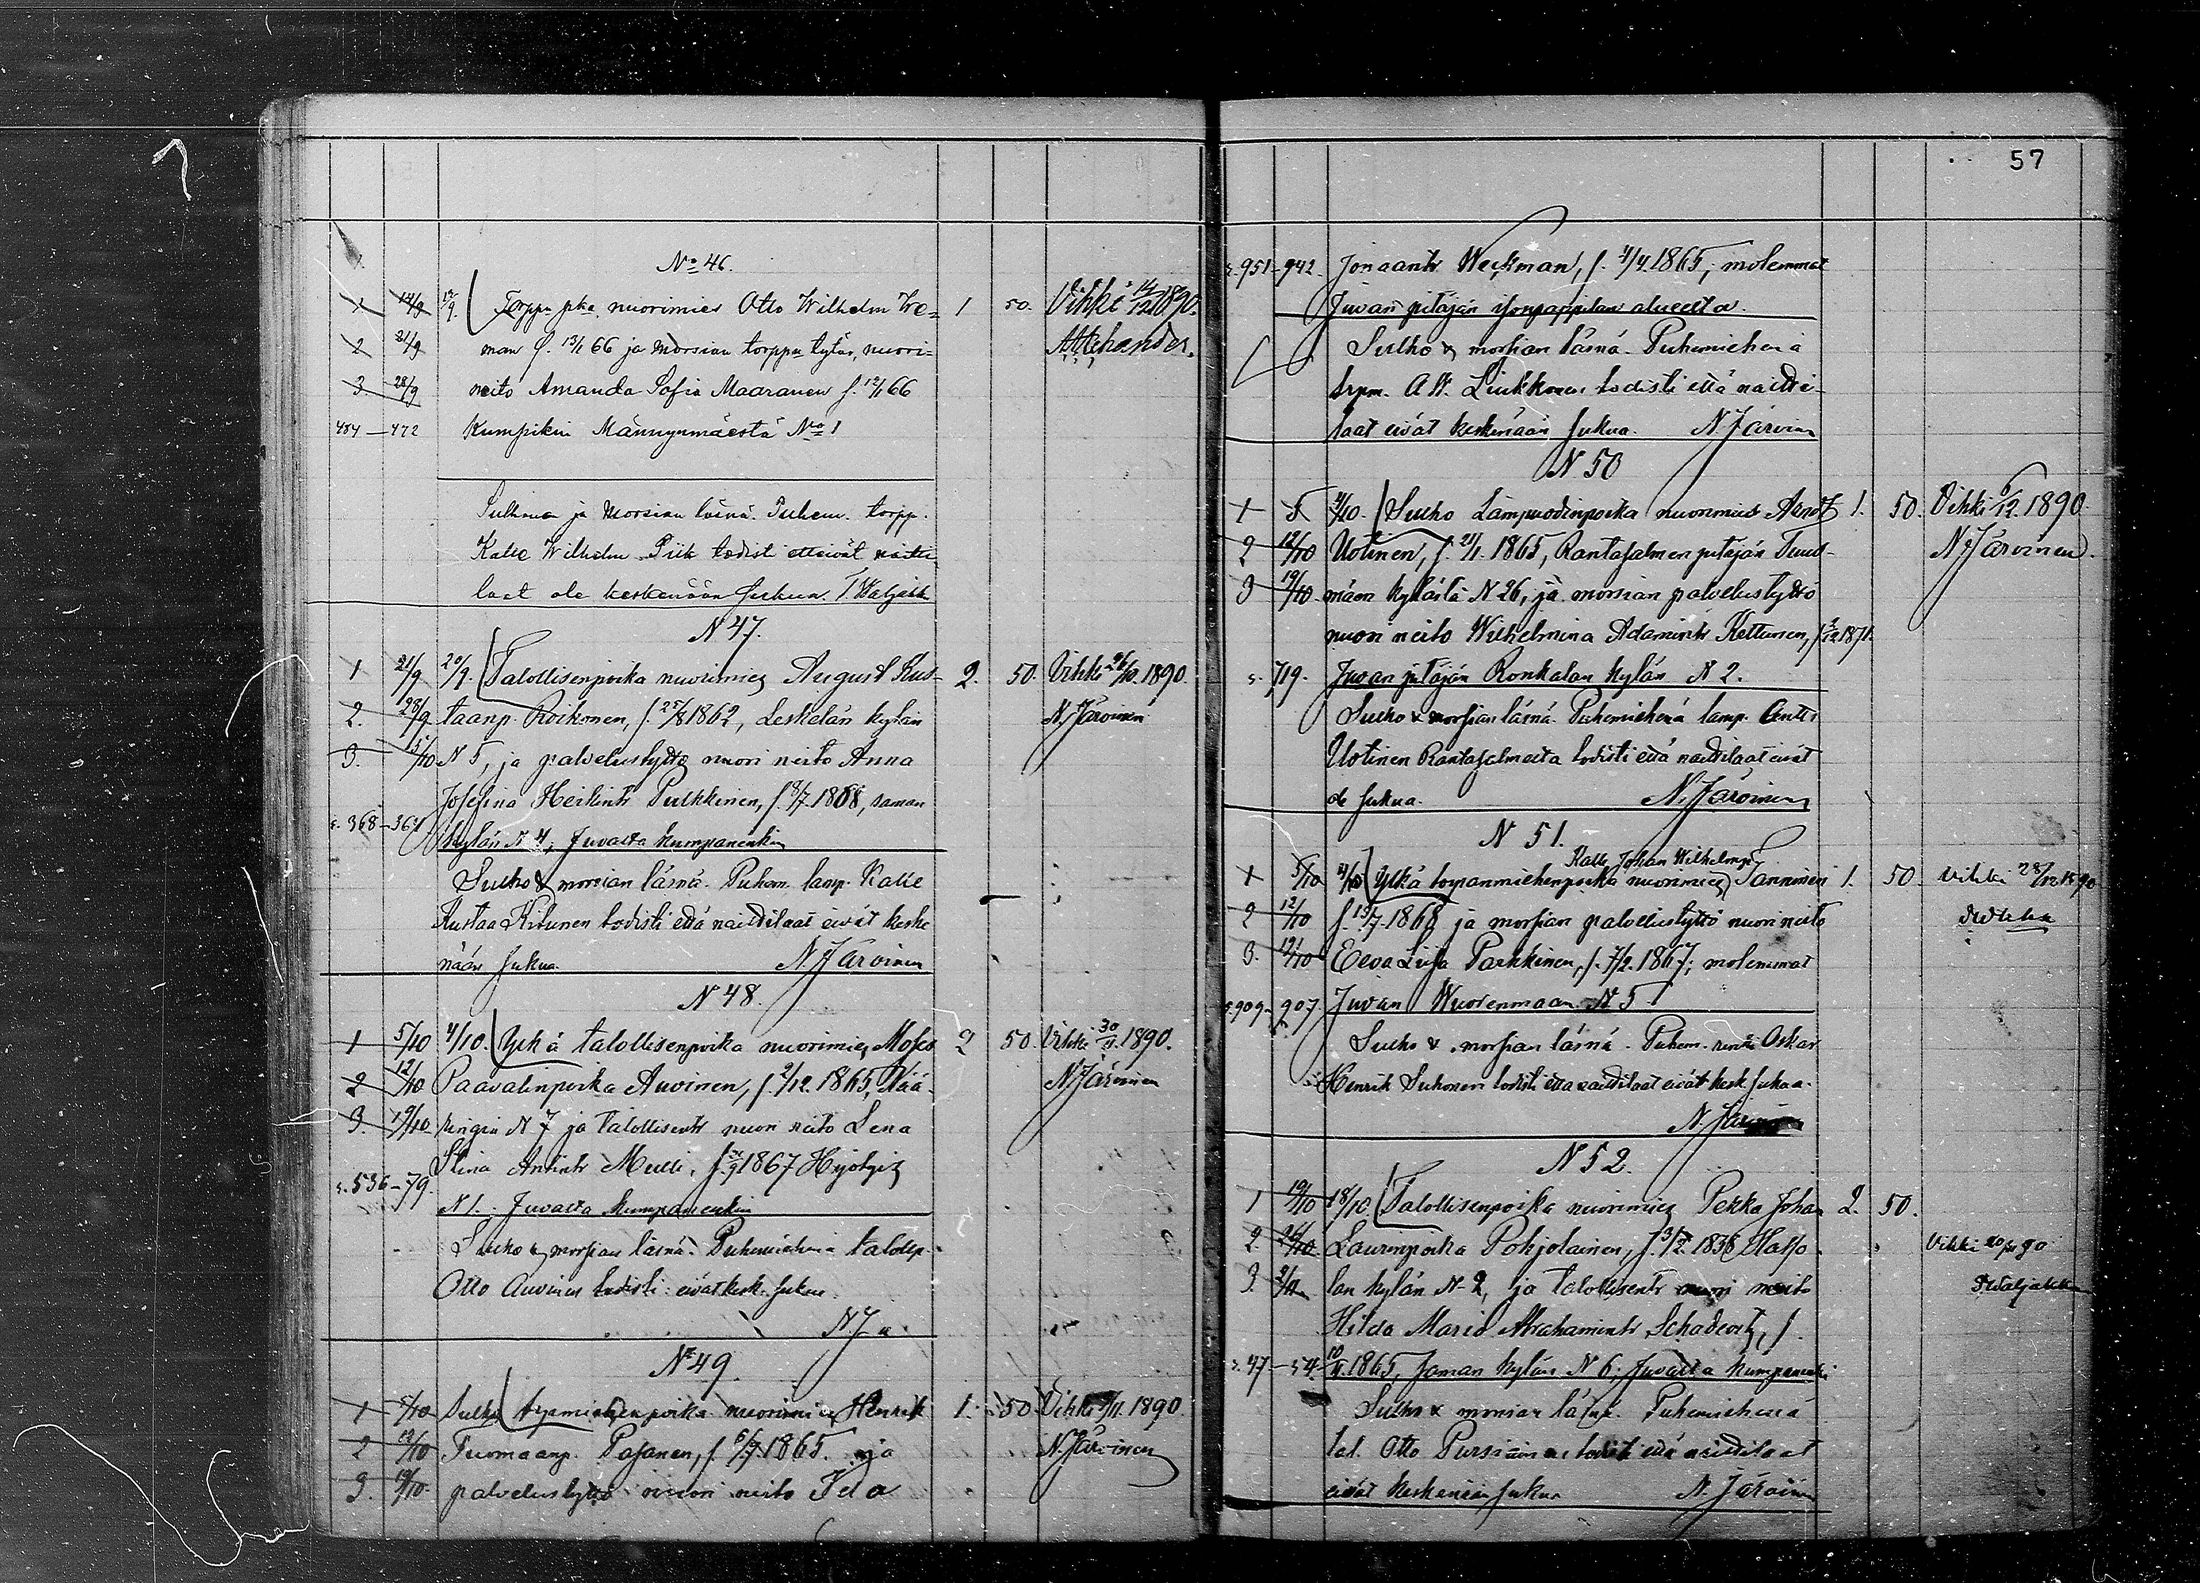 57
No 46.
1 14/9 13/9. Torppa pka nuorimies Otto Wilhelm We= 1 50. Vihki 14/12 1890.
2 21/9 man f. 13/1 66 ja Morsian torppa tytär, nuori=
3 28/9 neito Amanda Sofia Maaranen f. 12/1 66
484 — 472 Kumpikin Männynmäestä No 1
Sulhanen ja Morsian läsnä. Puhem. torpp.
Kalle Wilhelm Piik todisti etteivät naitti
laat ole keskenään sukua. T Waljakka
N 47.
1 21/9 20/9. Talollisenpoika nuorimies August Kus- 2. 50. Vihki 26/10. 1890
2. 28/9 taanp. Roikonen, f. 25/8 1862, Leskelän kylän N. Järvinen
3. 5/10 N 5, ja palvelustyttö nuori neito Anna
Josefina Heikintr Pulkkinen, f. 8/7 1868, saman
s. 368 - 364 kylän N 4, Juvalta kumpanenkin
Sulho & morsian läsnä. Puhem. lamp. Kalle
Kustaa Kitunen todisti että naittilaat eivät keske
nään sukua. N. Järvinen
N 48.
1 5/10 4/10. Yrkä talollisenpoika nuorimies Moses 2 50. Vihki 30/11. 1890.
2 12/10 Paavalinpoika Auvinen, f. 2/12. 1865, Nää- N. Järvinen
3. 19/10 ringin N 7 ja talollisentr nuori neito Lena
Stina Antintr Mulli, f. 1867
s. 536 - 79. N 1. Juvalta kumpanenkin
Sulho & morsian läsnä. Puhemiehenä talollp.
Otto Auvinen todisti: eivät kesk. sukua.
N. J
N 49
1 5/10 Sulho nuorimies Henrik 1. 50 Vihki 9/11. 1890
2 12/10 Tuomaanp. Pasanen, f. 1865. ja N. Järvinen
3. 19/10. palvelustyttö nuori neito Ida
s. 951 - 942. Jonaantr Weckman, f. 4/4 1865, molemmat
Juvan pitäjän isonpappilan alueelta.
Sulho & morsian läsnä. Puhemiehenä
trpm. A W. Liukkonen todisti että naitti-
laat eivät keskenään sukua. N. Järvinen
N 50
1 5 4/10. Sulho Lampuodinpoika nuorimies 1. 50. Vihki 6/12. 1890
2 12/10 Uotinen, f. 21/1. 1865, Rantasalmen pitäjän Tuus- N. Järvinen
3 19/10 mäen kylästä N 26, ja morsian palvelustyttö
nuori neito Wilhelmina Adamintr Kettunen, f. 1871.
s. 719. Juvan pitäjän Ronkalan kylän N 2.
Sulho & morsian läsnä. Puhemiehenä lamp. Antti
Uotinen Rantasalmelta todisti että naittilaat eivät
ole sukua. N. Järvinen
N 51.
Kalle Johan Wilhelmp.
1 5/10 4/10 Yrkä torpanmiehenpoika nuorimies Tanninen 1. 50 Vihki 28/12 1890
2 12/10 f. 13/7. 1868 ja morsian palvelustyttö nuori neito
3. 19/10 Eeva Liisa Parkkinen, f. 7/2. 1867; molemmat
s. 909 - 907. Juvan Wuorenmaan N 5
Sulho & morsian läsnä. Puhem. renki Oskar
Henrik Suhonen todisti että naittilaat eivät kesk. sukua.
N. Järvinen
N 52.
1 19/10 18/10. Talollisenpoika nuorimies Pekka Johan 2. 50.
2. 26/10 Laurinpoika Pohjolainen, f. 3/2. 1838 Halso Vihki 90
3. 2/11 lan kylän N 2, ja talollisentr nuori neito T Waljakka
Hilda Maria Abrahamintr Schadevitz, f.
s. 47 - 54 10/11. 1865, saman kylän N 6; Juvalta kumpanenki
Sulho & morsian läsnä. Puhemiehenä
tal. Otto Pursiainen todisti että naittilaat
eivät keskenään sukua N. Järvinen